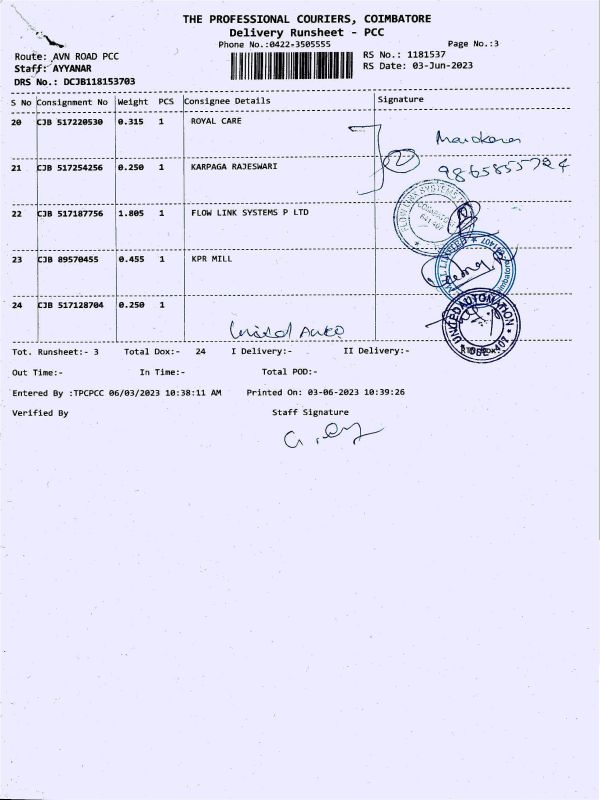 THE PROFESSIONAL COURIERS, COIMBATORE
Delivery Runsheet - PCC
Phone No.:0422-3505555 Page No.:3
Route: AVN ROAD PCC RS No.: 1181537
Staff: AYYANAR RS Date: 03-Jun-2023
DRS No.: DCJB118153703
S No Consignment No Weight PCS Consignee Details Signature
20 CJB 517220530 0.315 1 ROYAL CARE
2
21 CJB 517254256 0.250 1 KARPAGA RAJESWARI
22 CJB 517187756 1.805 1 FLOW LINK SYSTEMS P LTD
FLOW LINK SYSTEMS
COIMBATORE
641 407
23 CJB 89570455 0.455 1 KPR MILL
24 CJB 517128704 0.250 1
United Auto
UNITED AUTOMATION
Tot. Runsheet:- 3 Total Dox:- 24 I Delivery:- II Delivery:-
Out Time:- In Time:- Total POD:-
Entered By :TPCPCC 06/03/2023 10:38:11 AM Printed On: 03-06-2023 10:39:26
Verified By Staff Signature